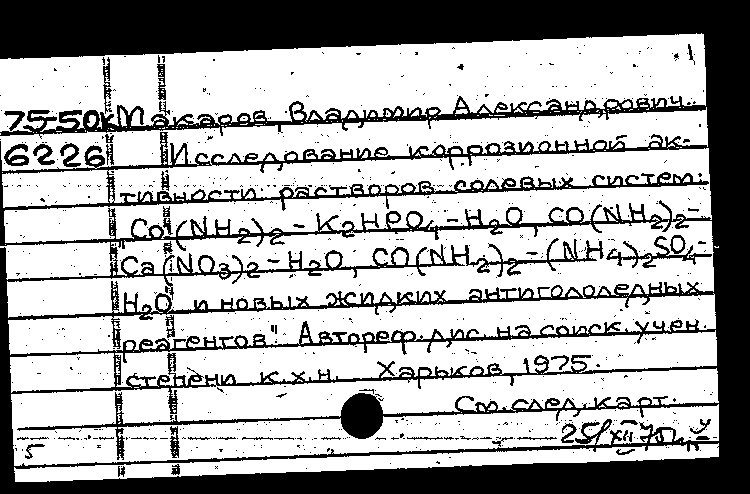 1
75-50к Макаров, Владимир Александрович.
6226 Исследование коррозионной ак-
тивности растворов солевых систем:
"Co(NH2)2-K2HPO4-H2O, CO(NH2)2-
Ca(NO3)2-H2O, CO(NH2)2-(NH4)2SO4-
H2O и новых жидких антигололедных
реагентов" Автореф. дис. на соиск. учен.
степени к.х.н. Харьков, 1975.
См. след. карт.
25/XII 75
5